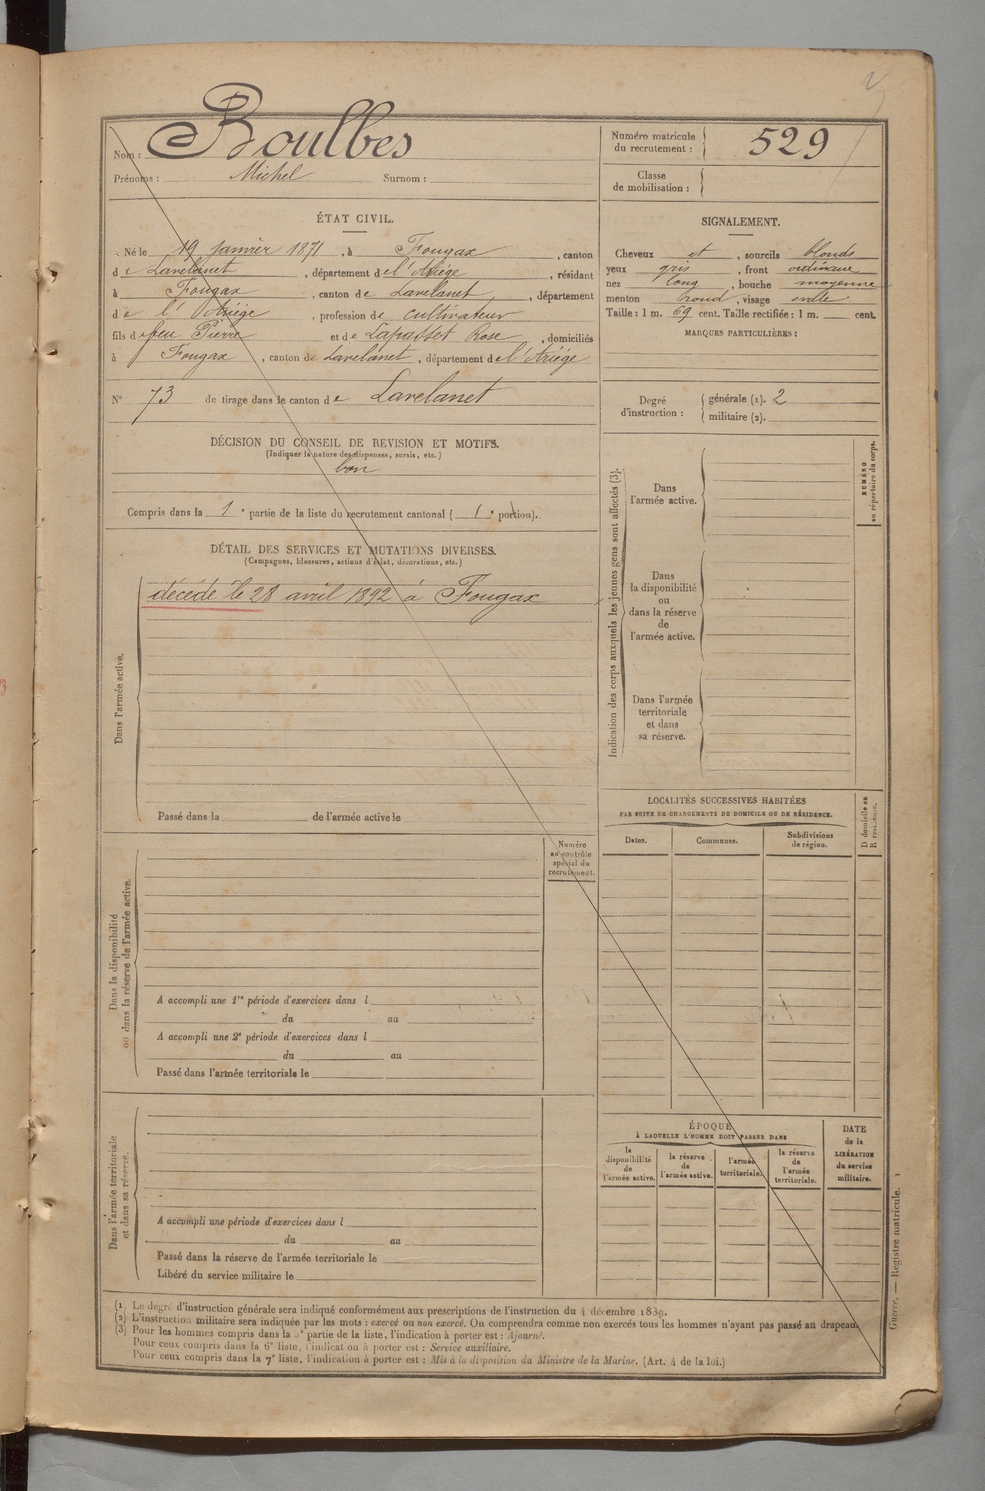 Nom : Boulbes
Prénoms : Michel Surnom :
Numéro matricule
du recrutement : 529
Classe
de mobilisation :
ÉTAT CIVIL.
Né le 19 janvier 1871, à Fougax, canton
de Lavelanet, département de l'Ariége, résidant
à Fougax, canton de Lavelanet, département
de l'Ariége, profession de cultivateur
fils de feu Pierre et de Lapasset Rose, domiciliés
à Fougax, canton de Lavelanet, département de l'Ariége
N° 73 de tirage dans le canton de Lavelanet
DÉCISION DU CONSEIL DE REVISION ET MOTIFS.
(Indiquer la nature des dispenses, sursis, etc.)
bon
Compris dans la 1e partie de la liste du recrutement cantonal (1e portion).
DÉTAIL DES SERVICES ET MUTATIONS DIVERSES.
(Campagnes, blessures, actions d'éclat, décorations, etc.)
Dans l'armée active.
décédé le 28 avril 1892 à Fougax
Passé dans la de l'armée active le
SIGNALEMENT.
Cheveux et, sourcils blonds
yeux gris, front ordinaire
nez long, bouche moyenne
menton rond, visage ovale
Taille : 1 m. 69 cent. Taille rectifiée : 1 m. cent.
MARQUES PARTICULIÈRES :
Degré
d'instruction :
générale (1). 2
militaire (2).
Indication des corps auxquels les jeunes gens sont affectés (3).
NUMÉRO
au répertoire du corps.
Dans
l'armée active.
Dans
la disponibilité
ou
dans la réserve
de
l'armée active.
Dans l'armée
territoriale
et dans
sa réserve.
LOCALITÉS SUCCESSIVES HABITÉES
PAR SUITE DE CHANGEMENTS DE DOMICILE OU DE RÉSIDENCE.
Dates.
Communes.
Subdivisions
de région.
D domicile ou
R résidence.
Dans la disponibilité
ou dans la réserve de l'armée active.
Numéro
au contrôle
spécial du
recrutement.
A accompli une 1re période d'exercices dans l
du au
A accompli une 2e période d'exercices dans l
du au
Passé dans l'armée territoriale le
Dans l'armée territoriale
et dans sa réserve.
A accompli une période d'exercices dans l
du au
Passé dans la réserve de l'armée territoriale le
Libéré du service militaire le
ÉPOQUE
À LAQUELLE L'HOMME DOIT PASSER DANS
la
disponibilité
de
l'armée active.
la réserve
de
l'armée active.
l'armée
territoriale.
la réserve
de
l'armée
territoriale.
DATE
de la
LIBÉRATION
du service
militaire.
(1) Le degré d'instruction générale sera indiqué conformément aux prescriptions de l'instruction du 4 décembre 1889.
(2) L'instruction militaire sera indiquée par les mots : exercé ou non exercé. On comprendra comme non exercés tous les hommes n'ayant pas passé au drapeau.
(3) Pour les hommes compris dans la 5e partie de la liste, l'indication à porter est : Ajourné.
Pour ceux compris dans la 6e liste, l'indication à porter est : Service auxiliaire.
Pour ceux compris dans la 7e liste, l'indication à porter est : Mis à la disposition du Ministre de la Marine. (Art. 4 de la loi.)
Guerre. — Registre matricule. 1